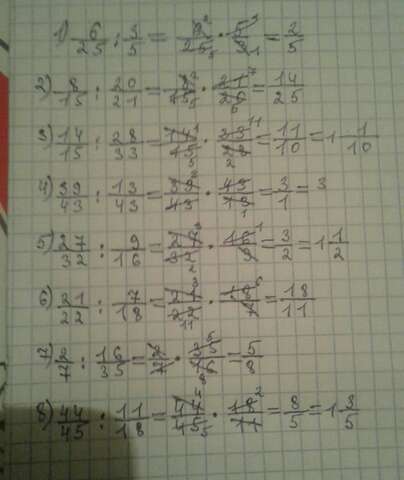 1) 6/25 : 3/5 = 6²/25₅ · 5¹/3₁ = 2/5
2) 8/15 : 20/21 = 8²/15₅ · 21⁷/20₅ = 14/25
3) 14/15 : 28/33 = 14¹/15₅ · 33¹¹/28₂ = 11/10 = 1 1/10
4) 39/43 : 13/43 = 39³/43 · 43/13₁ = 3/1 = 3
5) 27/32 : 9/16 = 27³/32₂ · 16¹/9 = 3/2 = 1 1/2
6) 21/22 : 7/18 = 21³/22₁₁ · 18⁶/7 = 18/11
7) 2/7 : 16/35 = 2/7 · 35⁵/16₈ = 5/8
8) 44/45 : 11/18 = 44⁴/45₅ · 18²/11 = 8/5 = 1 3/5